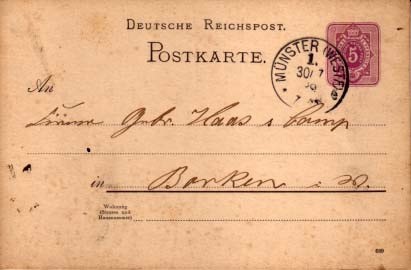 DEUTSCHE REICHSPOST.
POSTKARTE.
MÜNSTER (WESTF)
1.
30/
5
An
Firma Gebr. Haas & Comp
in Borken i. W.
Wohnung
(Strasse und
Hausnummer)